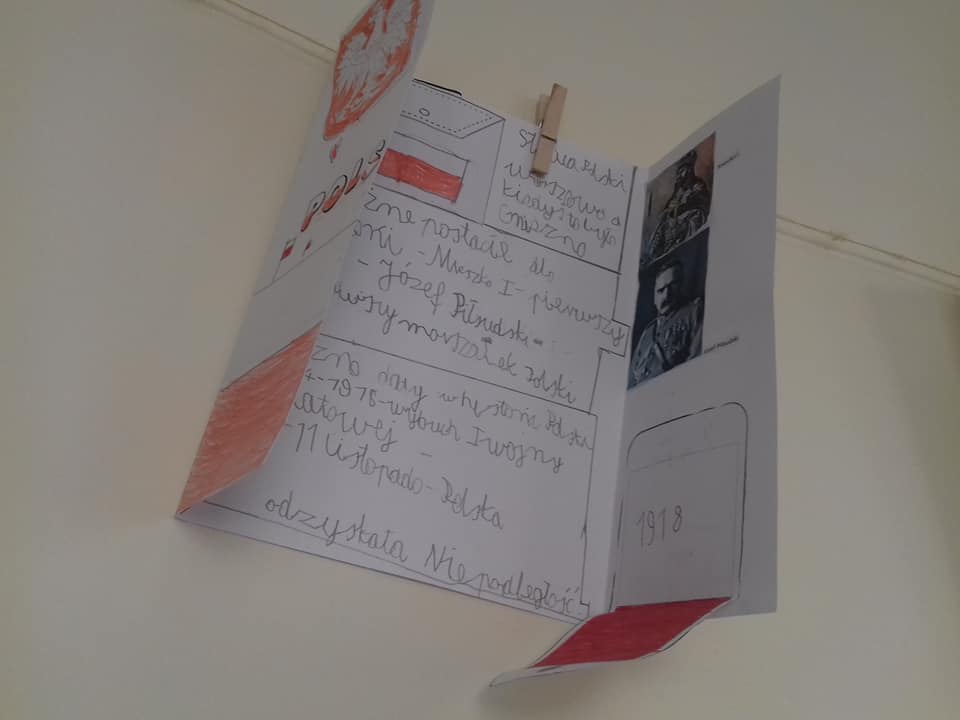 POLS
Polski
Warszawa a
kiedyś to było
Gniezno
żne postacie dla
ski - Mieszko I - pierwszy
- Józef Piłsudski -
wszy marszałek Polski
zna daty w hystorii Polski
4-1918-wybuch I wojny
atowej -
- 11 Listopada - Polska
odzyskała Niepodległość!
Józef Piłsudski
1918